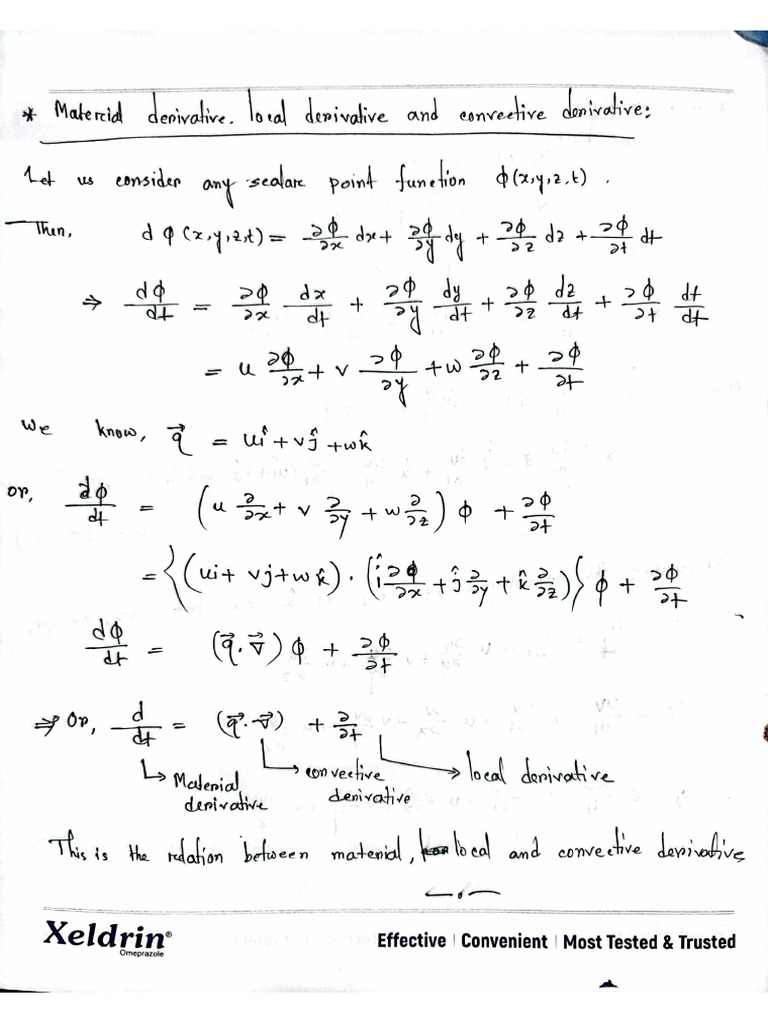 * Matercial derivative. local derivative and convective derivative:
Let us consider any scalarc point function ϕ(x,y,z,t).
Then, dϕ(x,y,z,t) = ∂ϕ/∂x dx + ∂ϕ/∂y dy + ∂ϕ/∂z dz + ∂ϕ/∂t dt
⇒ dϕ/dt = ∂ϕ/∂x dx/dt + ∂ϕ/∂y dy/dt + ∂ϕ/∂z dz/dt + ∂ϕ/∂t dt/dt
= u ∂ϕ/∂x + v ∂ϕ/∂y + w ∂ϕ/∂z + ∂ϕ/∂t
We know, q⃗ = uî + vĵ + wk̂
or, dϕ/dt = (u ∂/∂x + v ∂/∂y + w ∂/∂z) ϕ + ∂ϕ/∂t
= {(ui + vj + wk̂) · (î ∂ϕ/∂x + ĵ ∂/∂y + k̂ ∂/∂z)} ϕ + ∂ϕ/∂t
dϕ/dt = (q⃗.∇⃗) ϕ + ∂ϕ/∂t
⇒ Or, d/dt = (q⃗.∇⃗) + ∂/∂t
↳ Material derivative → convective derivative → local derivative
This is the relation between material, local and convective derivative
Xeldrin®
Omeprazole
Effective | Convenient | Most Tested & Trusted